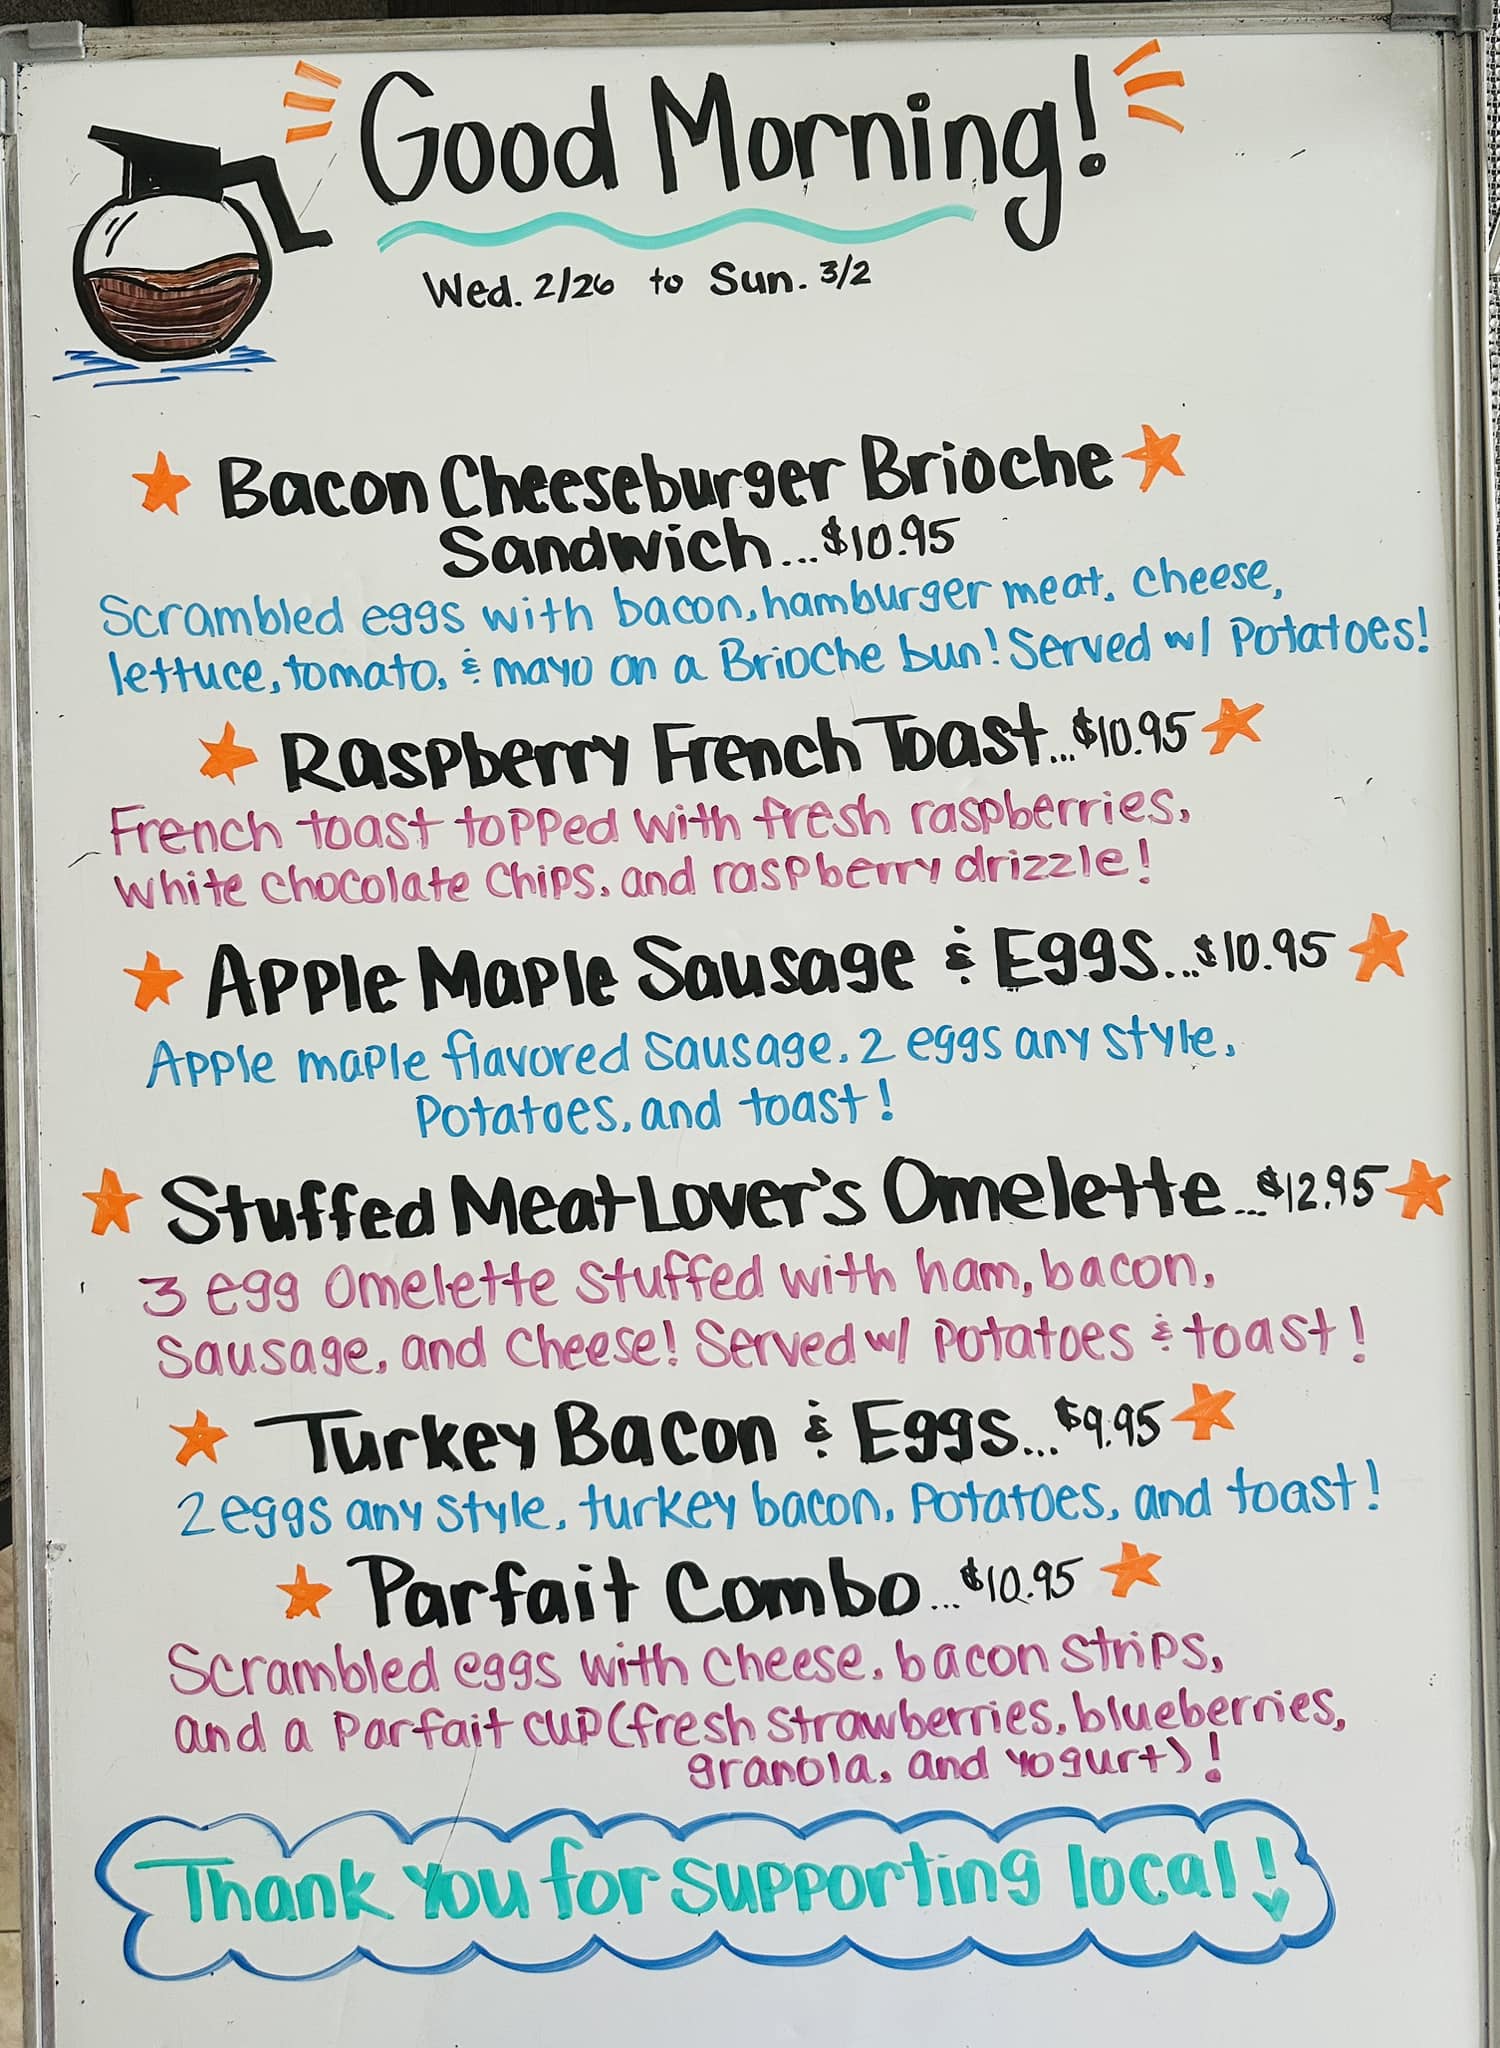 Good Morning!
Wed. 2/26 to Sun. 3/2
Bacon Cheeseburger Brioche
Sandwich...$10.95
Scrambled eggs with bacon, hamburger meat, cheese,
lettuce, tomato, & mayo on a Brioche bun! Served w/ potatoes!
Raspberry French Toast...$10.95
French toast topped with fresh raspberries,
white chocolate chips, and raspberry drizzle!
Apple Maple Sausage & Eggs...$10.95
Apple maple flavored sausage, 2 eggs any style,
potatoes, and toast!
Stuffed Meat Lover's Omelette...$12.95
3 egg omelette stuffed with ham, bacon,
sausage, and cheese! Served w/ potatoes & toast!
Turkey Bacon & Eggs...$9.95
2 eggs any style, turkey bacon, potatoes, and toast!
Parfait Combo...$10.95
Scrambled eggs with cheese, bacon strips,
and a parfait cup (fresh strawberries, blueberries,
granola, and yogurt)!
Thank you for supporting local!